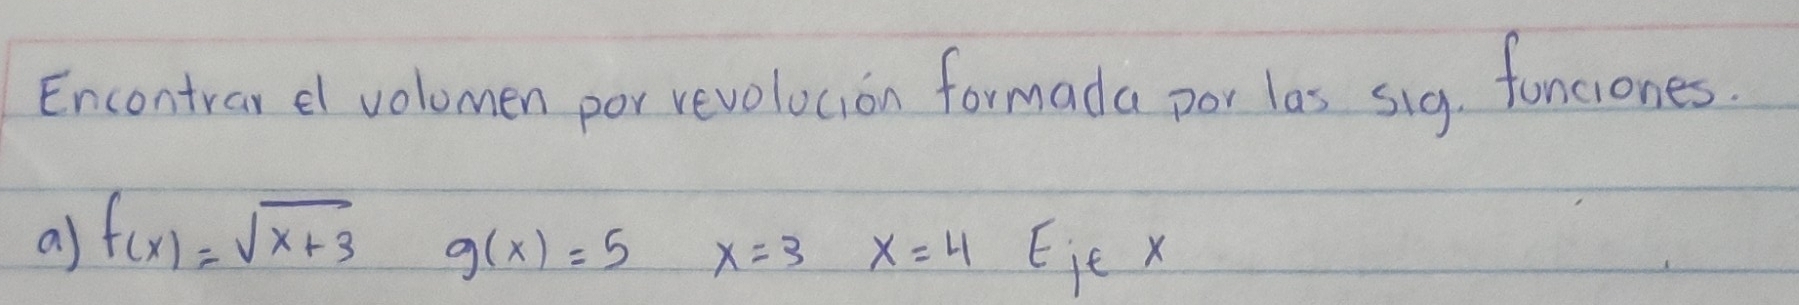 Encontrar el volumen por revolución formada por las sig. funciones.
a) f(x) = √x+3 g(x) = 5 x = 3 x = 4 Eje x